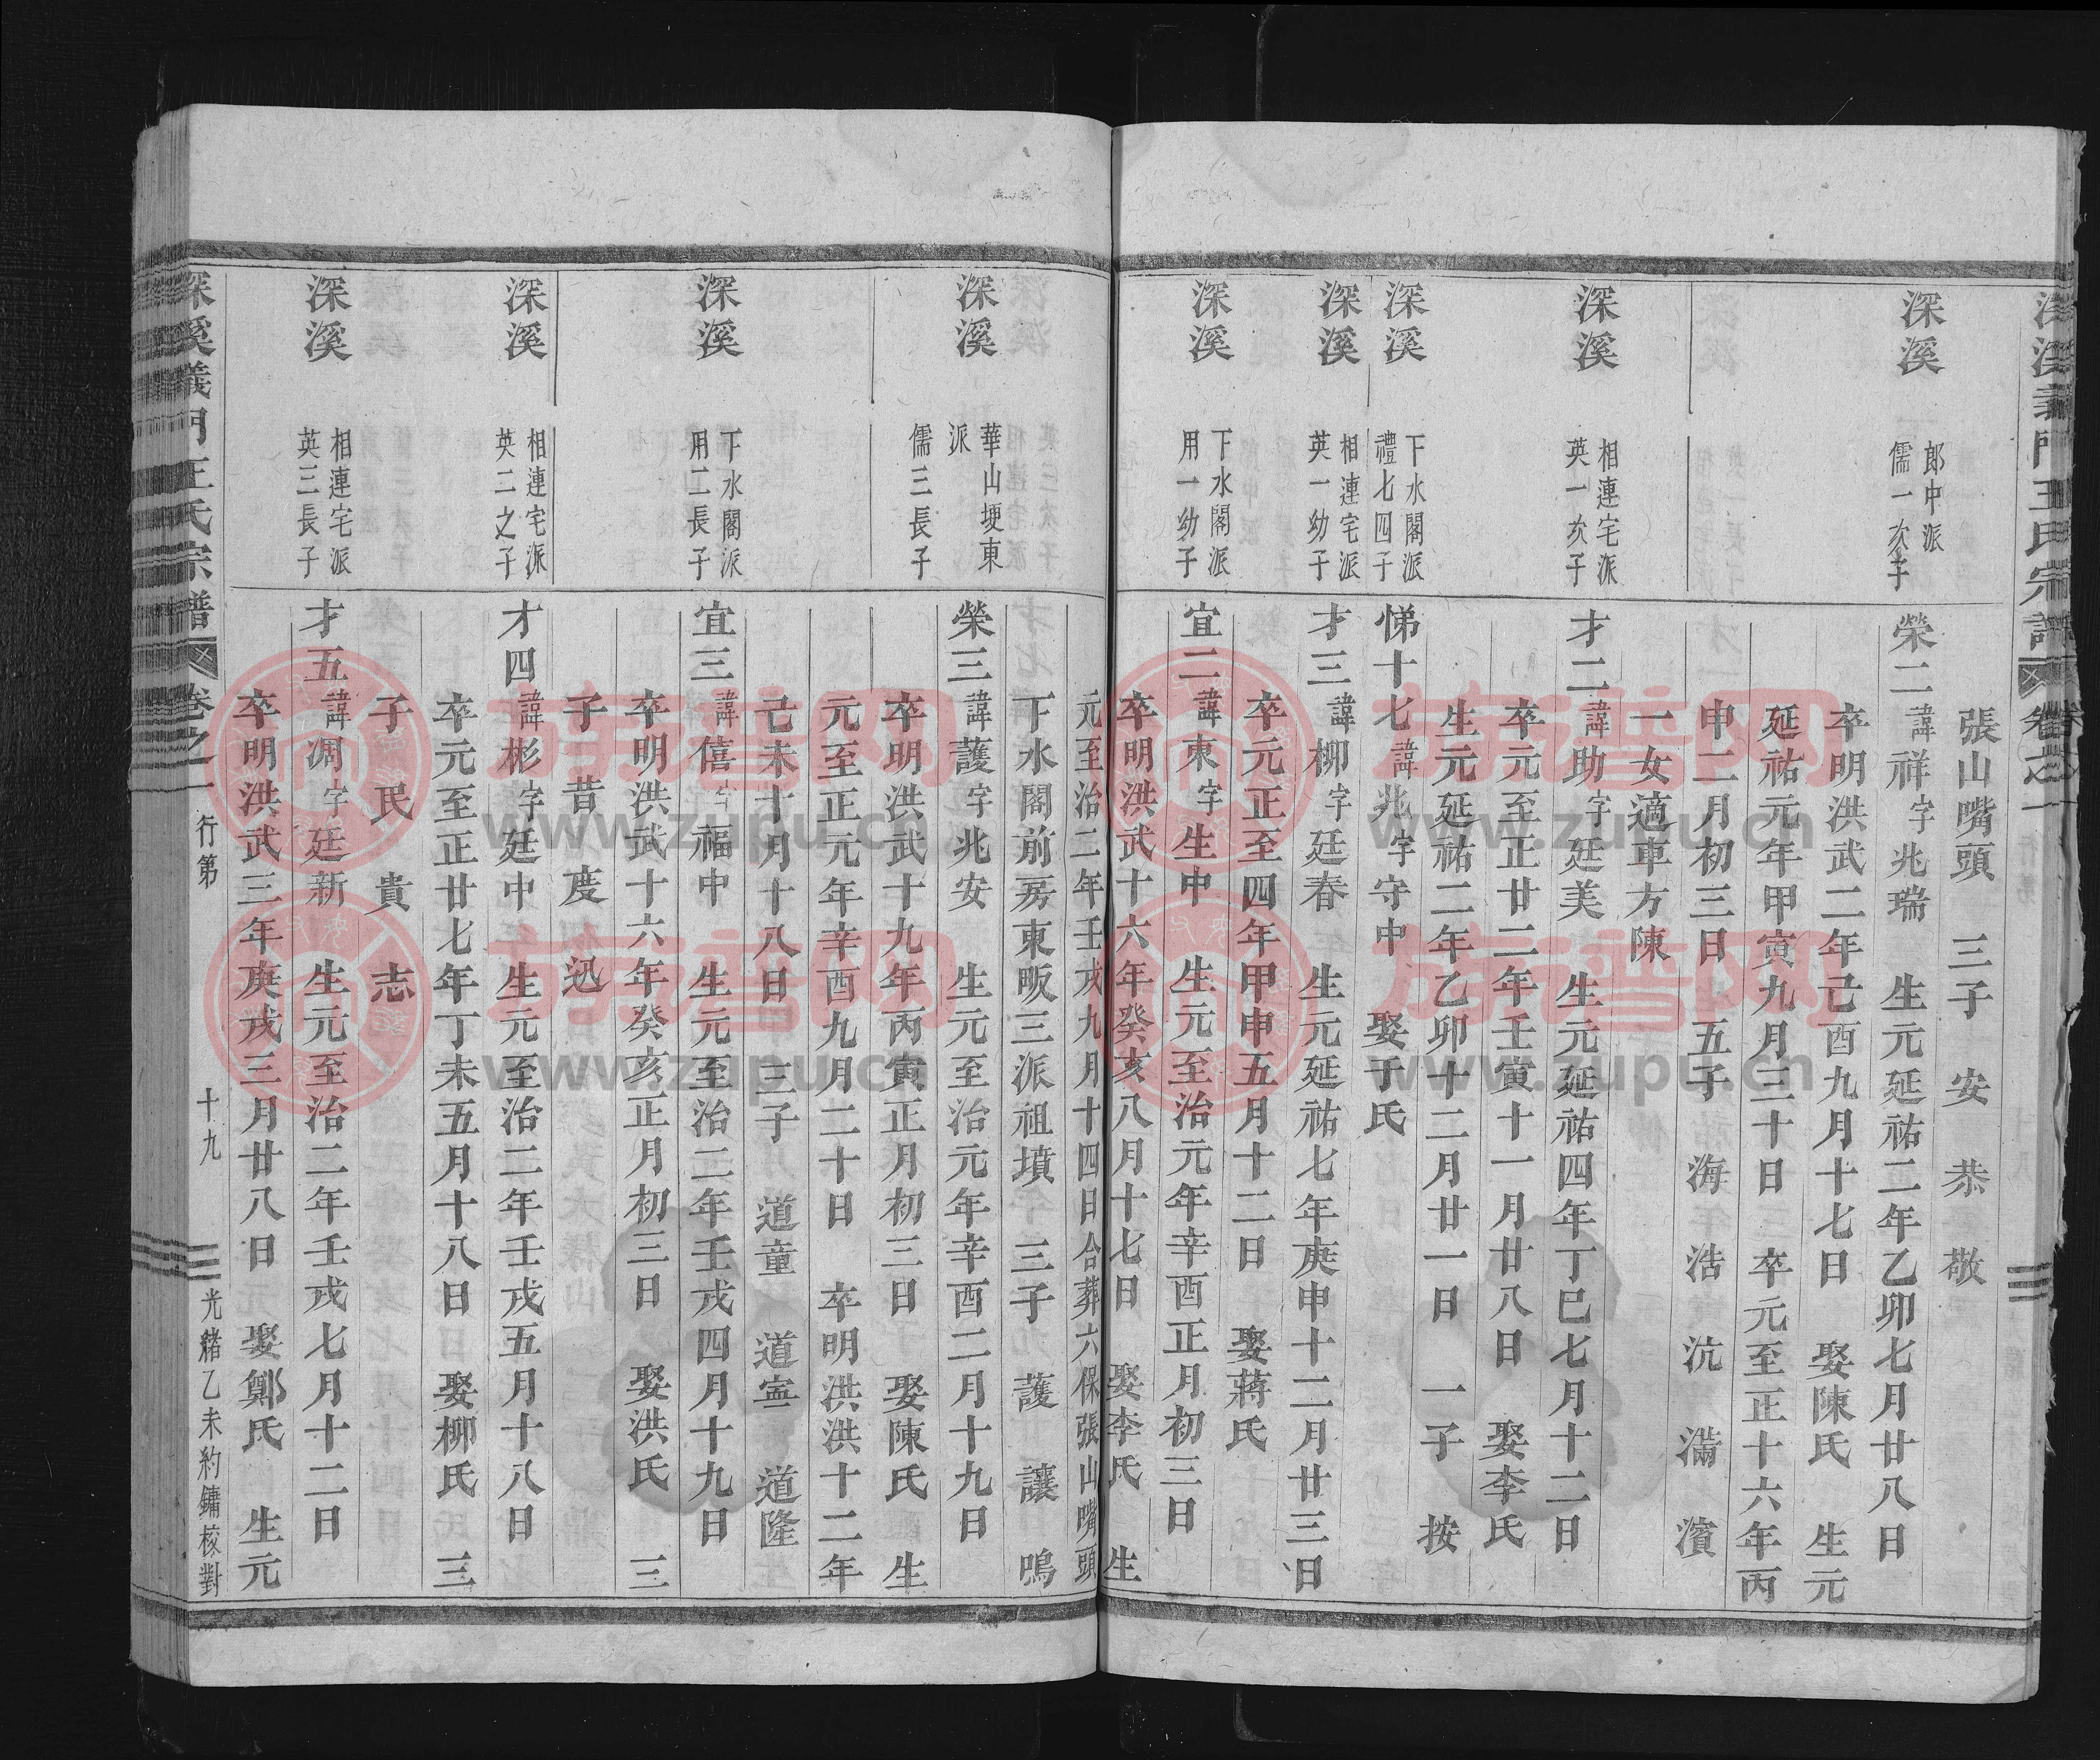 深溪義門王氏宗譜 卷之一
張山嘴頭 三子 安 恭 敬
深溪 郎中派 儒一次子 榮二諱祥字兆瑞 生元延祐二年乙卯七月廿八日
卒明洪武二年己酉九月十七日 娶陳氏 生元
延祐元年甲寅九月三十日 卒元至正十六年丙
申二月初三日 五子 海 浩 沆 滿 濱
一女適車方陳
深溪 相連宅派 英一次子 才二諱助字廷美 生元延祐四年丁巳七月十二日
卒元至正廿二年壬寅十一月廿八日 娶李氏
生元延祐二年乙卯十二月廿一日 一子 按
深溪 下水閣派 禮七四子 悌十七諱兆字守中 娶于氏
深溪 相連宅派 英一幼子 才三諱柳字廷春 生元延祐七年庚申十二月廿三日
卒元正至四年甲申五月十二日 娶蔣氏
深溪 下水閣派 用一幼子 宜二諱東字生中 生元至治元年辛酉正月初三日
卒明洪武十六年癸亥八月十七日 娶李氏 生
元至治二年壬戌九月十四日合葬六保張山嘴頭
下水閣前房東畈三派祖墳 三子 護 讓 鳴
深溪 華山塽東派 儒三長子 榮三諱護字兆安 生元至治元年辛酉二月十九日
卒明洪武十九年丙寅正月初三日 娶陳氏 生
元至正元年辛酉九月二十日 卒明洪洪十二年
己未十月十八日 三子 道童 道寧 道隆
深溪 下水閣派 用二長子 宜三諱僖字福中 生元至治二年壬戌四月十九日
卒明洪武十六年癸亥正月初三日 娶洪氏 三
子 昔 度 迅
深溪 相連宅派 英二之子 才四諱彬字廷中 生元至治二年壬戌五月十八日
卒元至正廿七年丁未五月十八日 娶柳氏 三
子 民 貴 志
深溪 相連宅派 英三長子 才五諱凋字廷新 生元至治二年壬戌七月十二日
卒明洪武三年庚戌三月廿八日 娶鄭氏 生元
深溪義門王氏宗譜 卷之一 行第 十九 光緒乙未約鏞校對
族譜网
www.zupu.cn
族譜网
www.zupu.cn
族譜网
www.zupu.cn
族譜网
www.zupu.cn